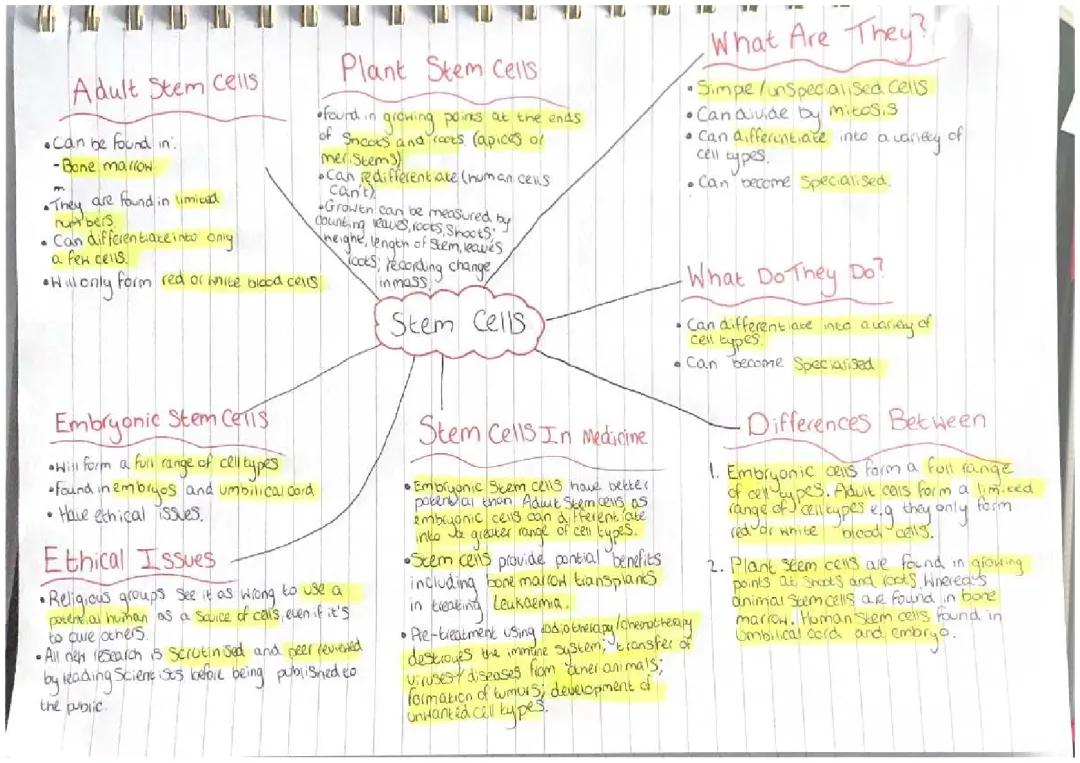 Adult Stem Cells
• Can be found in:
- Bone marrow
m
• They are found in limited
numbers.
• Can differentiate into only
a few cells.
• Will only form red or white blood cells
Plant Stem Cells
• Found in growing points at the ends
of Shoots and roots. (apices or
meristems)
• Can redifferentiate (human cells
can't).
• Growth can be measured by
counting leaves, roots, shoots;
height, length of stem, leaves
roots; recording change
in mass
What Are They?
• Simpe / unspecialised cells
• Can divide by mitosis
• Can differentiate into a variety of
cell types.
• Can become Specialised.
What Do They Do?
• Can differentiate into a variety of
cell types.
• Can become Specialised
Stem Cells
Embryonic Stem Cells
• Will form a full range of cell types
• Found in embryos and umbilical cord
• Have ethical issues.
Ethical Issues
• Religious groups see it as wrong to use a
potential human as a source of cells, even if it's
to cure others.
• All new research is scrutinised and peer reviewed
by leading scientists before being published to
the public.
Stem Cells In Medicine
• Embryonic Stem cells have better
potential than Adult Stem cells as
embryonic cells can differentiate
into a greater range of cell types.
• Stem cells provide potential benefits
including bone marrow transplants
in treating Leukaemia.
• Pre-treatment using radiotherapy/chemotherapy
destroyes the immune system; transfer of
viruses/diseases from other animals;
formation of tumurs; development of
unwanted cell types.
Differences Between
1. Embryonic cells form a full range
of cell types. Adult cells form a limited
range of cell types e.g they only form
red or white blood cells.
2. Plant Stem cells are found in growing
points at shoots and roots. Whereas
animal stem cells are found in bone
marrow. Human Stem cells found in
umbilical cord and embryo.